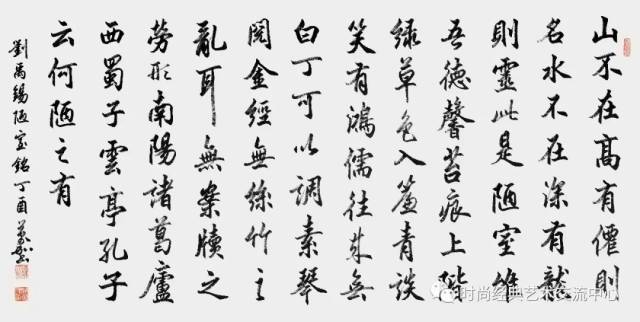 山不在高有僊則
名水不在深有龍
則靈此是陋室惟
吾德馨苔痕上階
綠草色入簾青談
笑有鴻儒往來無
白丁可以調素琴
閱金經無絲竹之
亂耳無案牘之
勞形南陽諸葛廬
西蜀子雲亭孔子
云何陋之有
劉禹錫陋室銘丁酉
时尚经典艺术交流中心